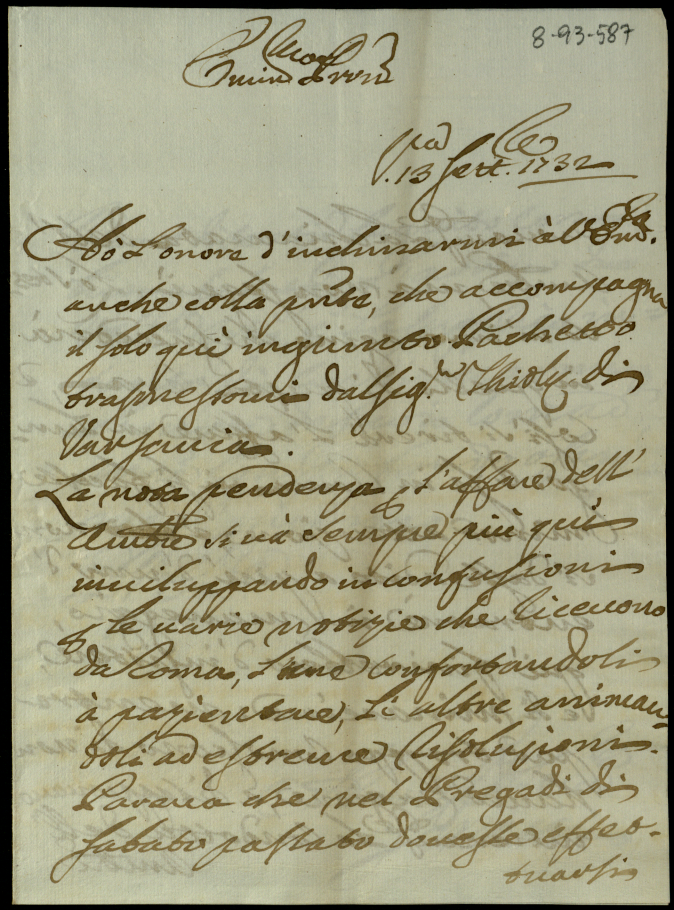 8-93-587
Emin: Prone
13 Sett. 1732
Hò l'onore d'inchinarmi à V. Em.
anche colla pñte, che accompagna
il solo quì ingiunto Pachetto
trasmessomi dal Sig.r Thioly di
Varsauia.
La nota pendenza p l'affare dell'
Ambre si uà sempre più quì
inuiluppando in confusioni
p le uarie notizie che riceuono
da Roma, l'une confortandoli
à pazientare, li altre animan-
doli ad estreme risoluzioni.
Pareua che nel Pregadi di
Sabato passato douesse effet-
tuarsi